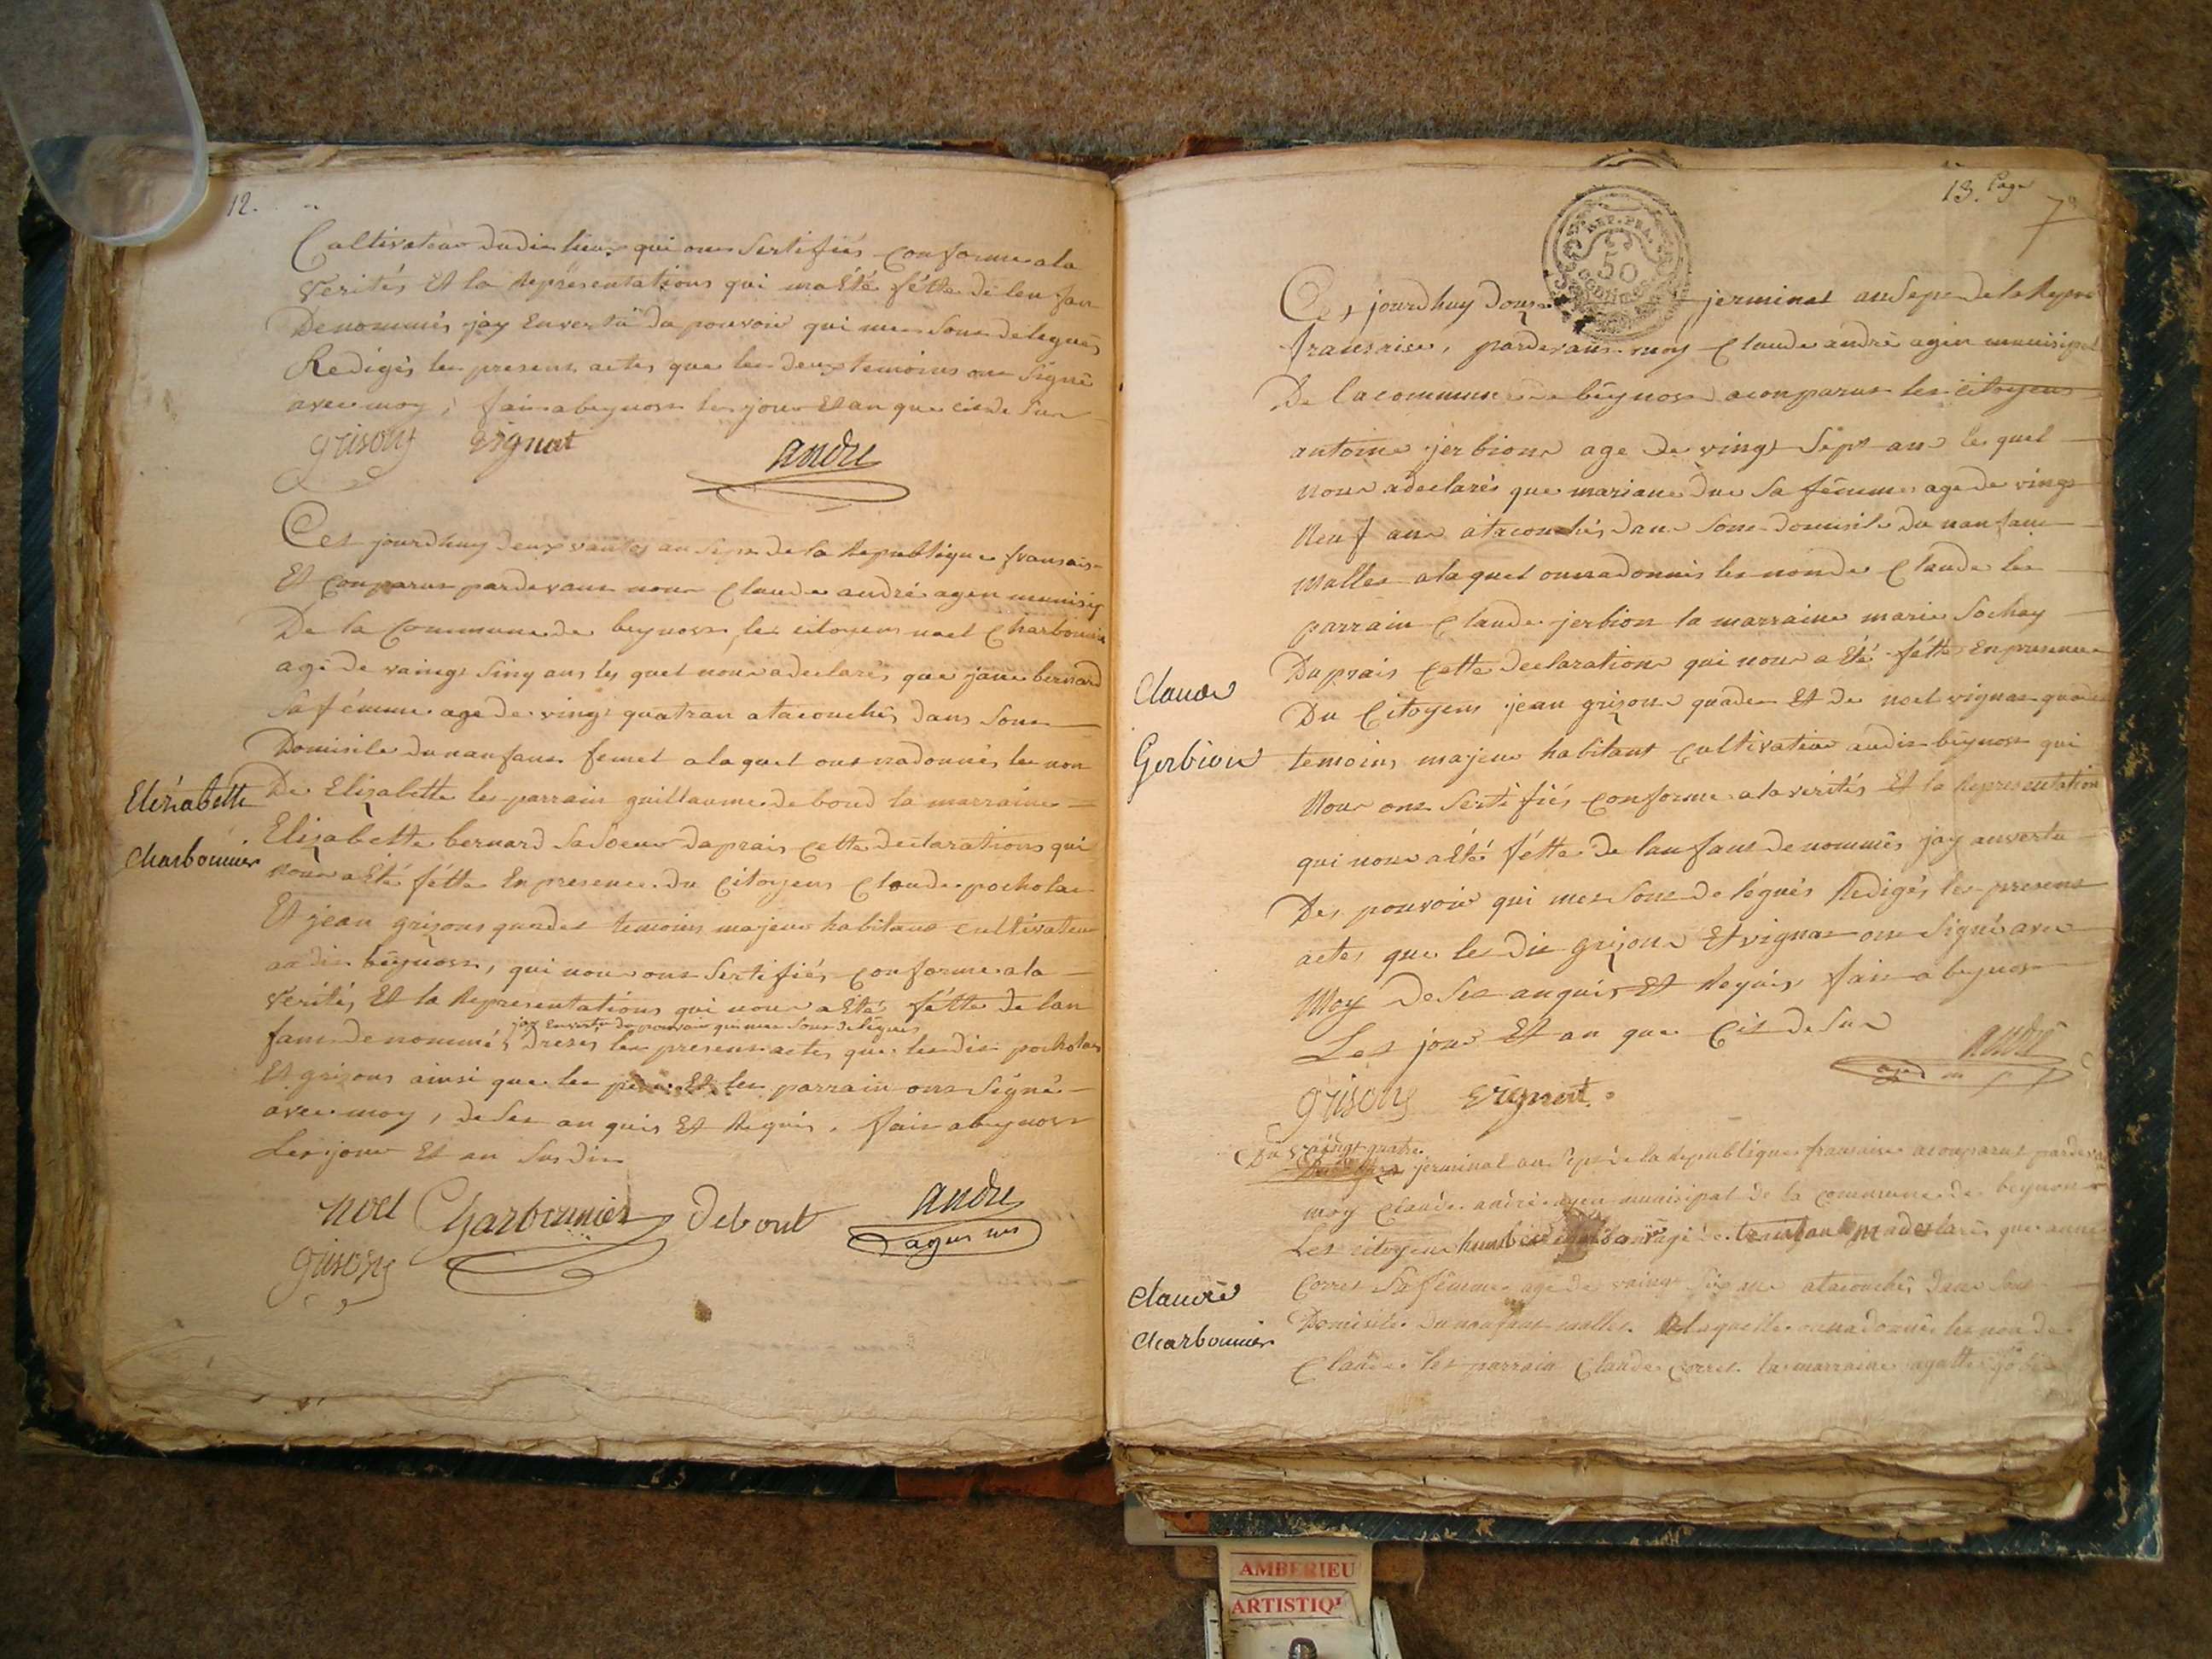 12.
Cultivateur dudit lieux qui ons Sertifiés conforme ala
Verités Et la Représentations qui ma Eté fétte de len fan
Denommés jay Envertü du pouvoir qui mes Sons delegués
Redigés les presens actes que les deux temoins ons Signé
avec moy, fait a beynost les jour Et an que cis de Sur
grisons vignat andre
Cet jourdhuy deux vantos an Sept de la Republique fransais
Et conparus pardevans nous Claude andré agen munisip
De la Commune de beynost, les citoyens noel Charbounie
age de vaingt Sinq ans les quel nous a declarés que jane bernard
Sa fémme age de vingt quatran a tacouchés dans Sons
Domisile dunanfans femel a laquel ons nadonnés les non
Elizabette
De Elizabette les parrain guillaume deboud la marraine
Charbounier
Elizabette bernard Sa Soeur daprais cette declarations qui
nous a Eté fétte En presence du Citoyens Claude pocholat
Et jean grizons quadet temoins majeur habitans cultivateur
au dit beynost, qui nous ons Sertifiés conforme ala
Verités Et la Representations qui nous a Eté fétte de lan
jay envertu du pouvoir qui mes Sons delégués
fans denommés dresés les presens actes que les dit pocholat
Et grizons ainsi que les pere Et les parrain ons Signé
avec moy, de Ses an quis Et Requis. fait a beynost
Les jour Et an Susdit
noel Charbounier Debout andre
agen m
grisons
13. Page
7
REP. FRA.
50
Ces jourdhuy douze jerminal an Sept de la Repu
fransaise, pardevans moy Claude andré agen munisipal
De la commune de beynost a conparus les citoyens
antoine jerbion age de vingt Sept ans le quel
nous a declarés que mariane Duc Sa fémme age de vingt
neuf ans a tacouchés dans Sons domisile du nanfans
malle a laquel ons nadonnés les non de Claude les
parrain Claude jerbion la marraine marie Sochay
Claude
Daprais cette declarations qui nous a Eté fétte En presence
Du Citoyens jean grizons quadet Et de noel vignat quadet
Gerbion
temoins majeur habitans cultivateur audit beynost qui
Nous ons Sertifiés conforme ala verités Et la Representation
qui nous a Eté fétte de lanfans denommés jay anvertu
Des pouvoir qui mes Sons delégués Redigés les presens
actes que les dit grizons Et vignat ons Signé avec
Moy de Ses anquis Et Requis fait a beynost
Les jour Et an que Cis de Sur
andré
grisons vignat
Du vaingt quatre
jerminal an Sept de la Republique fransaise a conparus pardevan
moy Claude andré agen munisipal de la commune de beynost
Les citoyens age de trantans ma declarés que anne
Claude
Corret Sa fémme age de vaingt Six ans a tacouchés dans Sons
Charbounier
Domisile du nanfans malle a laquelle ons nadonnés les non de
Claude les parrain Claude Corret la marraine agatte
AMBERIEU
ARTISTIQ